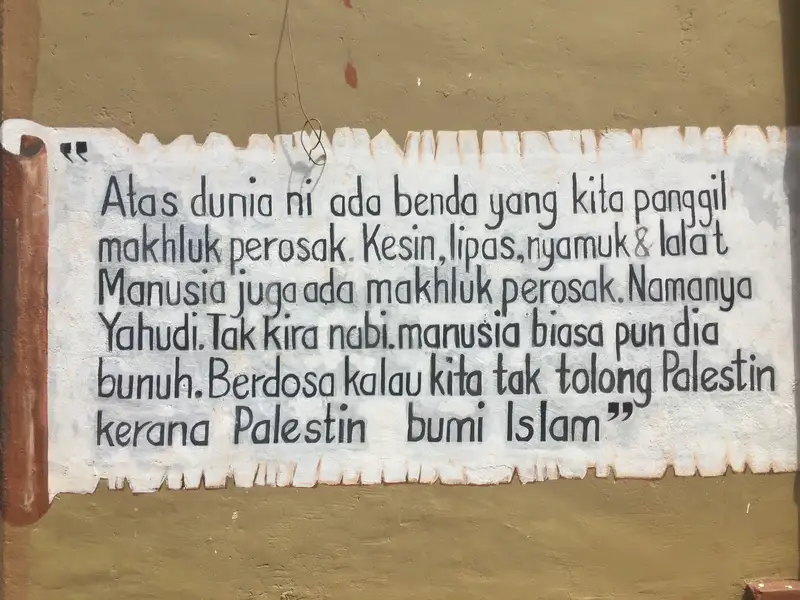 "Atas dunia ni ada benda yang kita panggil
makhluk perosak. Kesin, lipas, nyamuk & lalat
Manusia juga ada makhluk perosak. Namanya
Yahudi. Tak kira nabi. manusia biasa pun dia
bunuh. Berdosa kalau kita tak tolong Palestin
kerana Palestin bumi Islam"